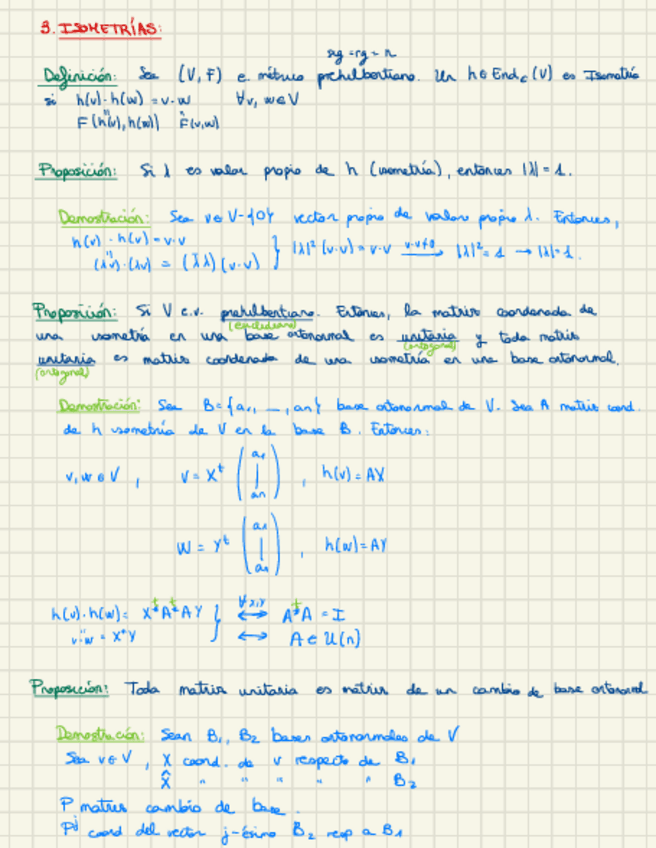 3. ISOMETRÍAS:
sg = rg = n
Definición: Sea (V, F) e. métrico prehilbertiano. Un h ∈ End_C (V) es Isometría
si h(v)·h(w) = v·w ∀v, w ∈ V
F(h(v), h(w)) F(v,w)
Proposición: Si λ es valor propio de h (isometría), entonces |λ| = 1.
Demostración: Sea v ∈ V-{0} vector propio de valor propio λ. Entonces,
h(v)·h(v) = v·v
(λv)·(λv) = (λ̄λ)(v·v) } |λ|² (v·v) = v·v —v·v≠0→ |λ|² = 1 → |λ| = 1.
Proposición: Si V e.v. prehilbertiano. Entonces, la matriz coordenada de
(euclidiano)
una isometría en una base ortonormal es unitaria y toda matriz
(ortogonal)
unitaria es matriz coordenada de una isometría en una base ortonormal.
(ortogonal)
Demostración: Sea B = {a1, —, an} base ortonormal de V. Sea A matriz coord.
de h isometría de V en la base B. Entonces:
v, w ∈ V , v = X^t (a1 | an) , h(v) = AX
w = Y^t (a1 | an) , h(w) = AY
h(v)·h(w) = X^t A^t A Y } ∀X,Y ↔ A^t A = I
v·w = X^t Y ↔ A ∈ U(n)
Proposición: Toda matriz unitaria es matriz de un cambio de base ortonormal
Demostración: Sean B1, B2 bases ortonormales de V
Sea v ∈ V , X coord. de v respecto de B1
X̂ " " " " " B2
P matriz cambio de base.
P^j coord del vector j-ésimo B2 resp a B1